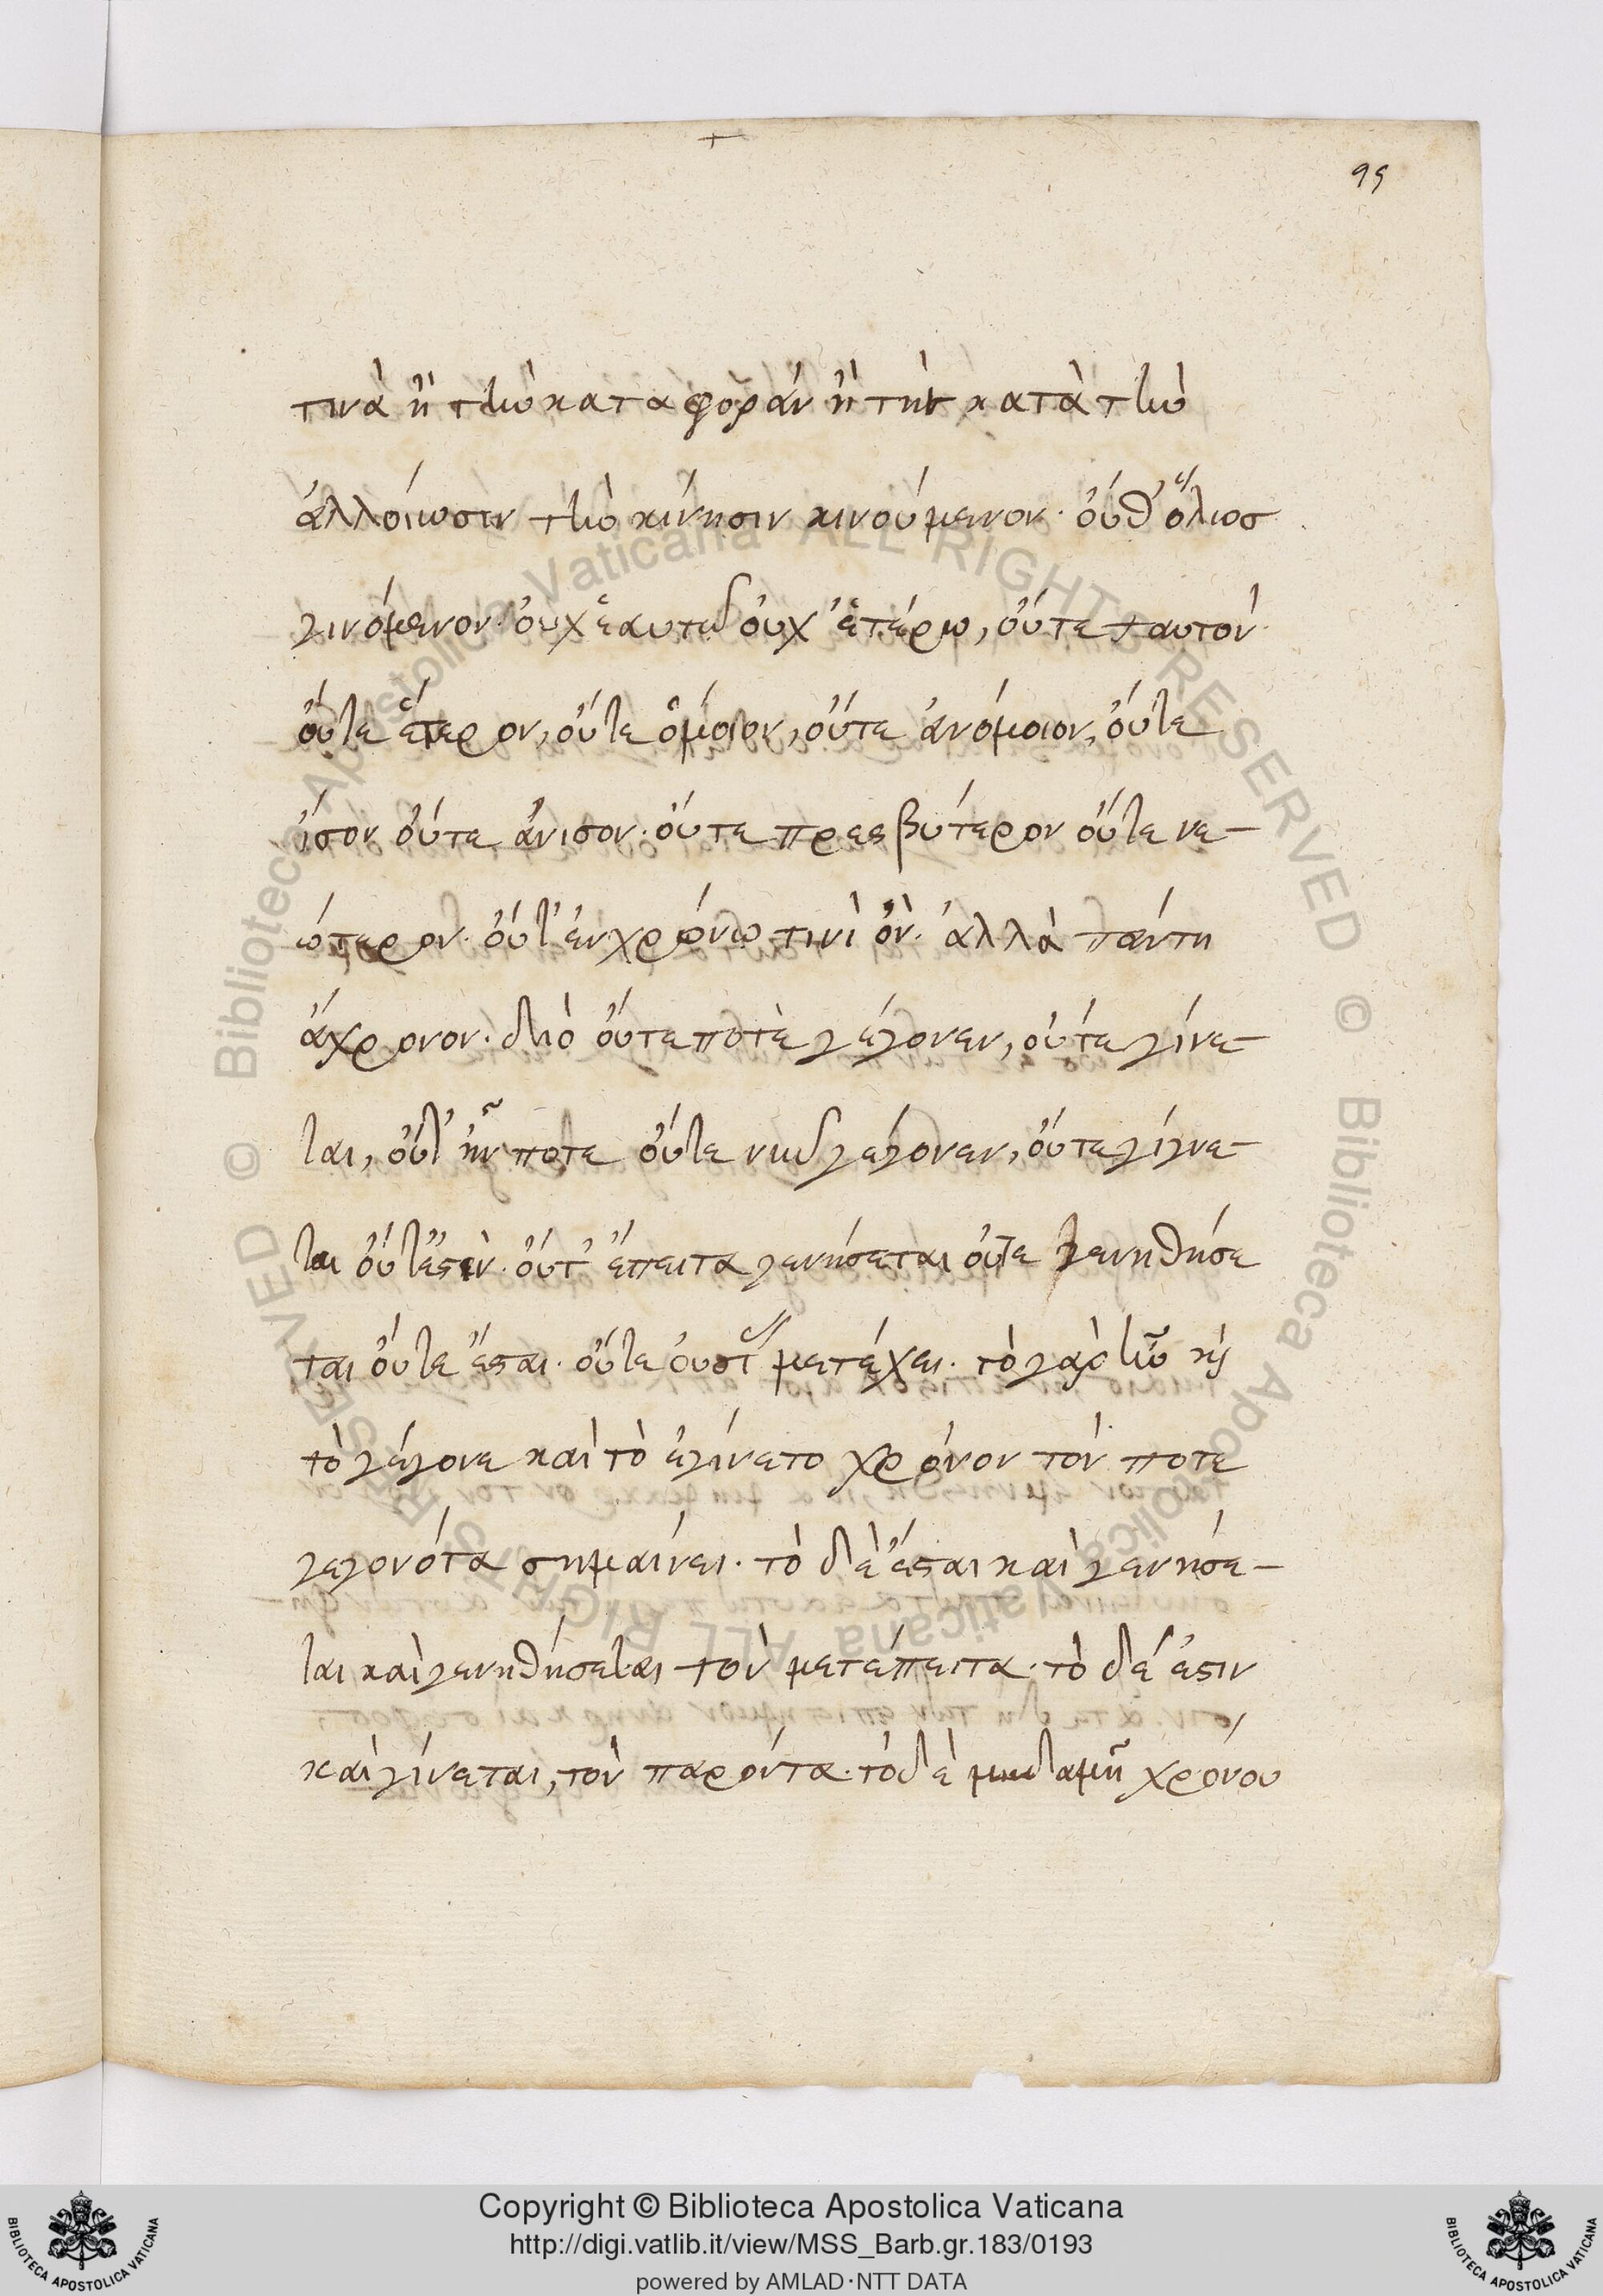 95
τινὰ ἢ τὴν κατα φορὰν ἢ τὴν κατὰ τὴν
ἀλλοίωσιν τὴν κίνησιν κινούμενον· οὔθ' ὅλως
γινόμενον· οὐχ ἑαυτῶ οὐχ' ἑτέρω, οὔτε ταυτὸν
οὔτε ἕτερον, οὔτε ὅμοιον, οὔτε ἀνόμοιον, οὔτε
ἴσον οὔτε ἄνισον· οὔτε πρεσβύτερον οὔτε νε-
ώτερον· οὔτ' ἐν χρόνω τινὶ ὄν· ἀλλὰ πάντη
ἄχρονον· διὸ οὔτε ποτὲ γέγονεν, οὔτε γίνε-
ται, οὔτ' ἦν ποτε οὔτε νῦν γέγονεν, οὔτε γίγνε-
ται οὔτ' ἔστιν· οὔτ' ἔπειτα γενήσεται οὔτε γενηθήσε
ται οὔτε ἔσται· οὔτε οὐσίας μετέχει· τὸ γὰρ ἦν κὶ
τὸ γέγονε καὶ τὸ ἐγίνετο χρόνον τὸν ποτε
γεγονότα σημαίνει· τὸ δὲ ἔσται καὶ γενήσε-
ται καὶ γενηθήσεται τὸν μετέπειτα· τὸ δέ ἐστιν
καὶ γίνεται, τὸν παρόντα· τὸ δὲ μηδαμῆ χρόνου
© Biblioteca Apostolica Vaticana ALL RIGHTS RESERVED © Biblioteca Apostolica Vaticana ALL RIGHTS RESERVED
Copyright © Biblioteca Apostolica Vaticana
http://digi.vatlib.it/view/MSS_Barb.gr.183/0193
powered by AMLAD·NTT DATA
BIBLIOTECA APOSTOLICA VATICANA
BIBLIOTECA APOSTOLICA VATICANA